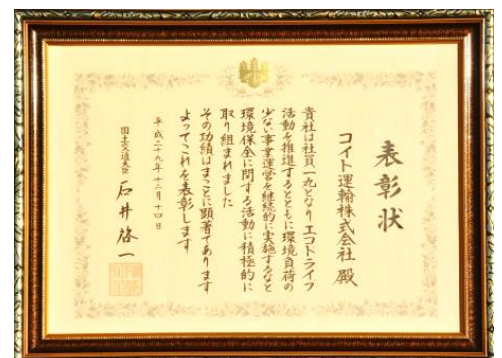 表彰状
コイト運輸株式会社 殿
貴社は社員一丸となりエコドライブ
活動を推進するとともに環境負荷の
少ない事業運営を継続的に実施するなど
環境保全に関する活動に積極的に
取り組まれました
その功績はまことに顕著であります
よってこれを表彰します
平成二十九年十二月十四日
国土交通大臣 石井啓一